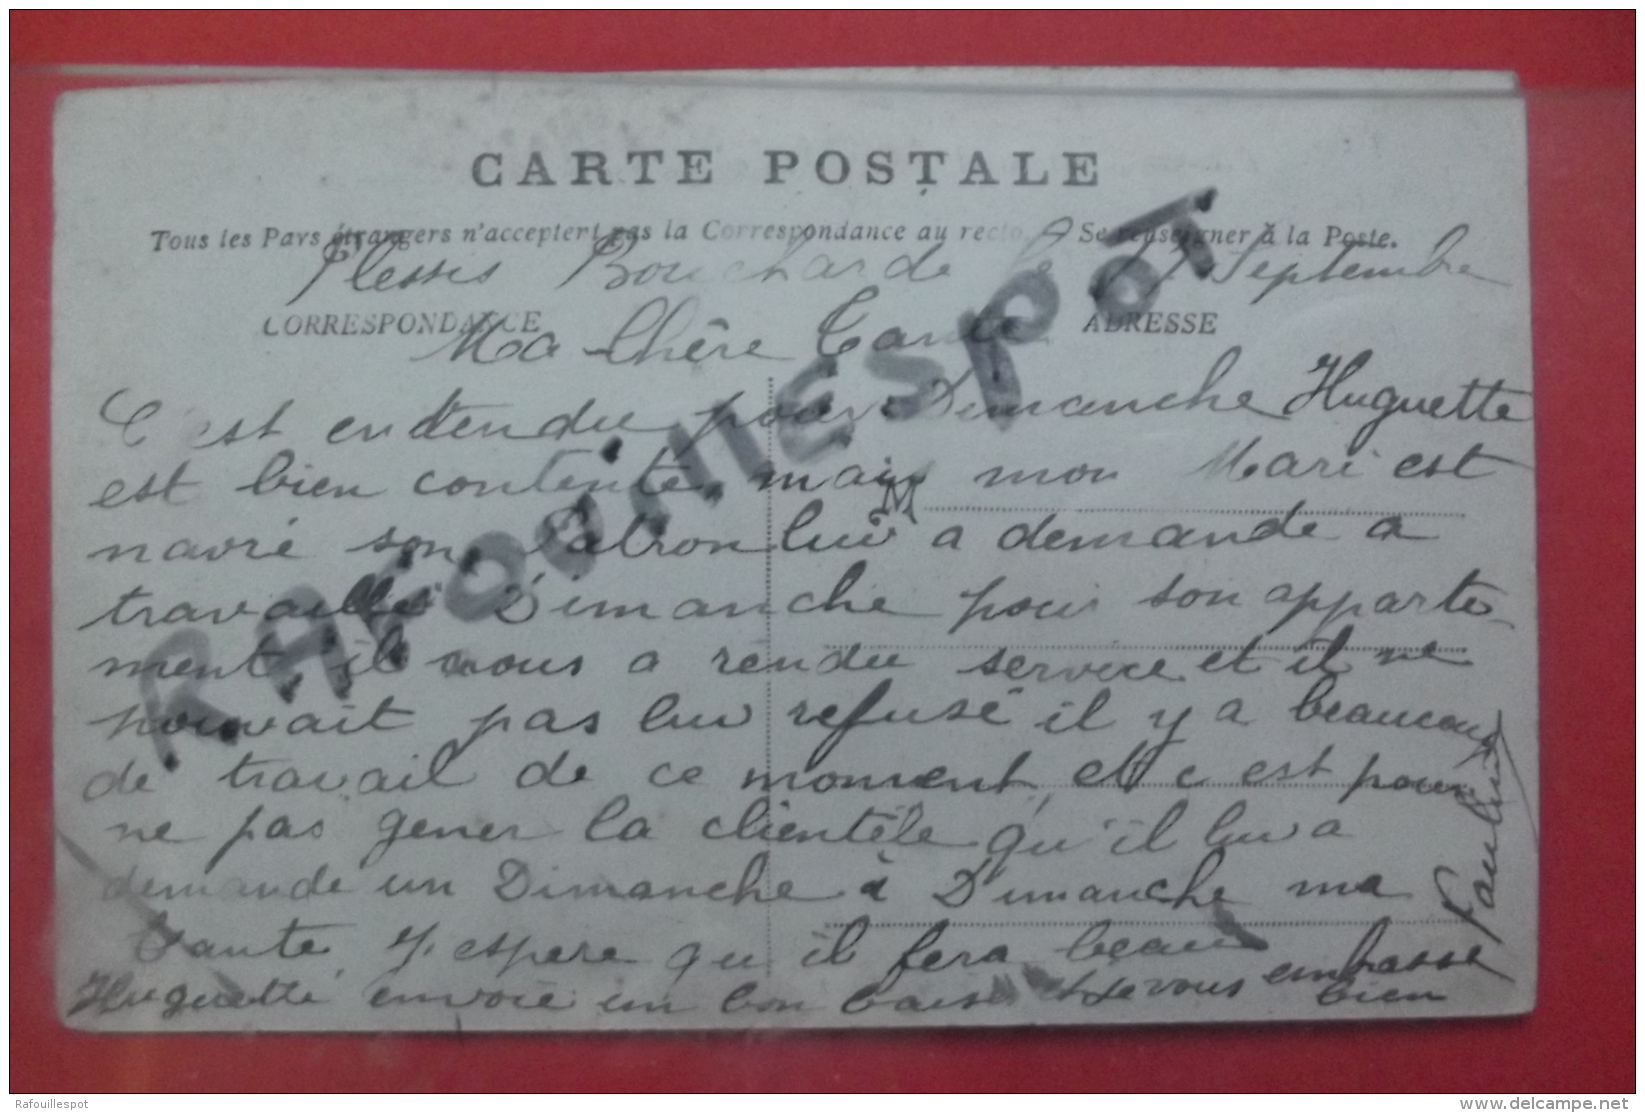 CARTE POSTALE
Tous les Pays étrangers n'acceptent pas la Correspondance au recto. Se renseigner à la Poste.
Plessis Boucharde le Septembre
CORRESPONDANCE ADRESSE
Ma Chère Tante
C'est entendu pour Dimanche Huguette
est bien contente, mais mon Mari est
M
navré son Patron lui a demande a
travailler Dimanche pour son apparte-
ment, il nous a rendu service et il ne
pouvait pas lui refusé il y a beaucoup
de travail de ce moment, et c est pour
ne pas gener la clientèle qu'il lui a
demande un Dimanche à Dimanche ma
Tante, J'espere qu'il fera beau
Huguette envoie un bon baiser et je vous embrasse
bien
Pauline
RAFOUILLESPOT
Rafouillespot
delcampe.net